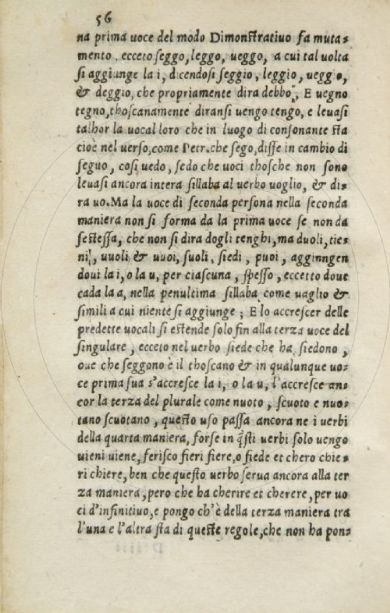 56
na prima uoce del modo Dimonstratiuo fa muta-
mento, ecceto seggo, leggo, ueggo, a cui tal uolta
si aggiunge la i, dicendosi seggio, leggio, ueggio,
& deggio, che propriamente dira debbo, E uegno
tegno, thoscanamente diransi uengo tengo, e leuasi
talhor la uocal loro che in luogo di consonante sta
cioè nel uerso, come Petr. che sego, disse in cambio di
seguo, cosi uedo, sedo che uoci thosche non sono
leuasi ancora intera sillaba al uerbo uoglio, & di-
ra uo. Ma la uoce di seconda persona nella seconda
maniera non si forma da la prima uoce se non da
sestessa, che non si dira dogli tenghi, ma duoli, tie-
ni, uuoli & uuoi, suoli, siedi, puoi, aggiungen
doui la i, o la u, per ciascuna, spesso, eccetto doue
cada la a, nella penultima sillaba come uaglio &
simili a cui niente si aggiunge; E lo accrescer delle
predette uocali si estende solo fin alla terza uoce del
singulare, ecceto nel uerbo siede che ha siedono,
oue che seggono è il thoscano & in qualunque uo-
ce prima sua s'accresce la i, o la u, l'accresce an-
cor la terza del plurale come nuoto, scuoto e nuo-
tano scuotano, questo uso passa ancora ne i uerbi
della quarta maniera, forse in q̃sti uerbi solo uengo
uieni uiene, ferisco fieri fiere, o fiede et chero chie-
ri chiere, ben che questo uerbo serua ancora alla ter
za maniera, pero che ha cherire et cherere, per uo
ci d'infinitiuo, e pongo ch'è della terza maniera tra
l'una e l'altra sta di queste regole, che non ha pon-